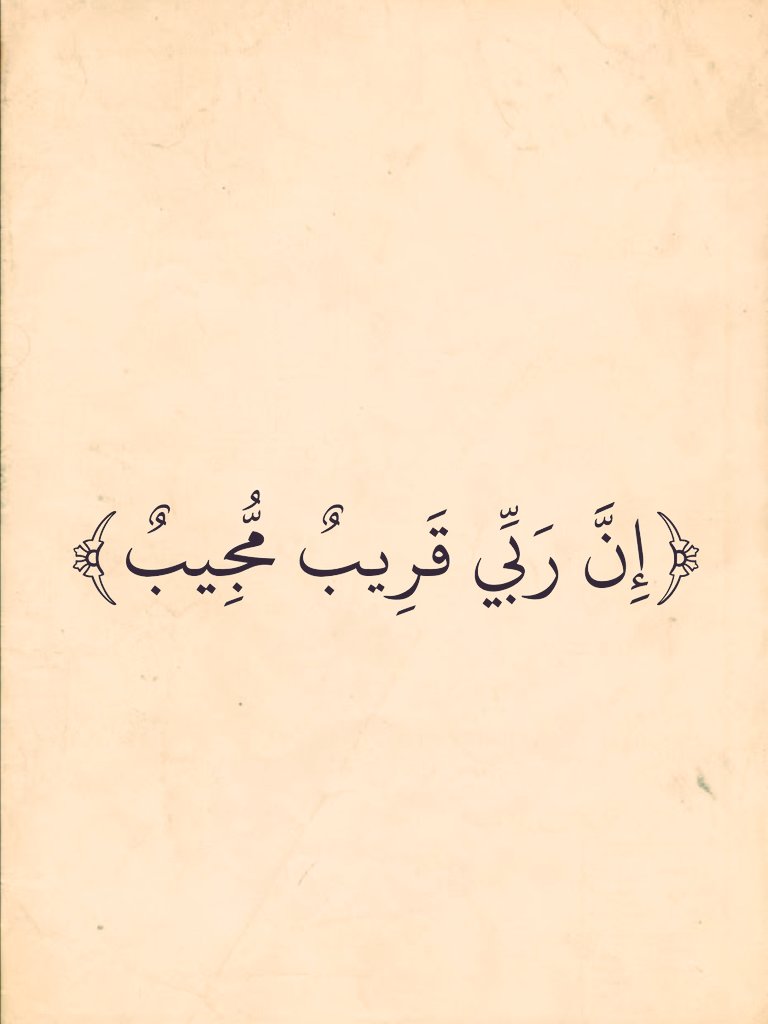 ﴿إِنَّ رَبِّي قَرِيبٌ مُّجِيبٌ﴾